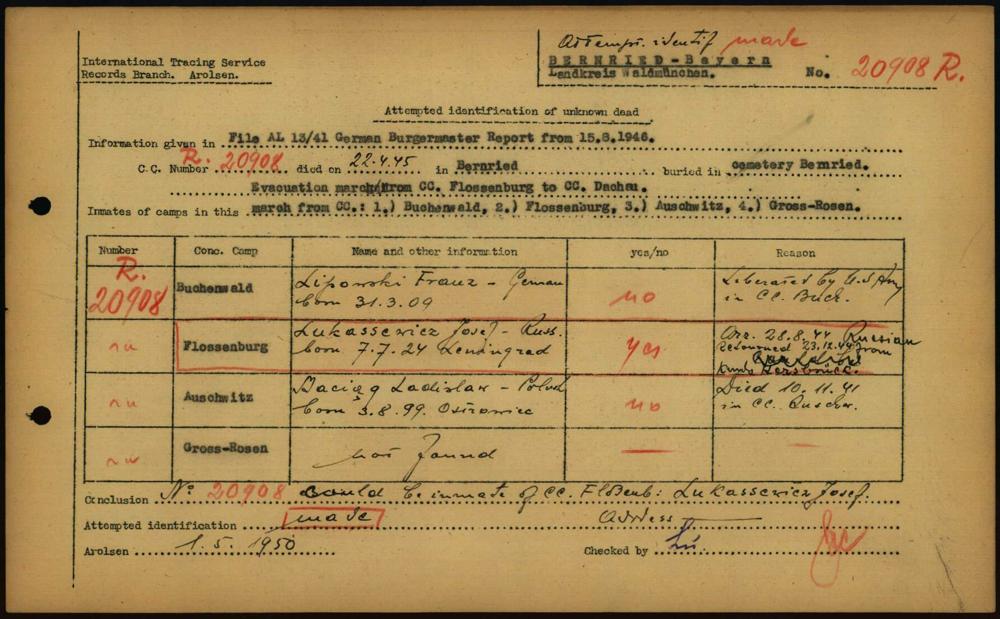 Attempt. identif made
International Tracing Service
Records Branch. Arolsen.
BERNRIED-Bayern
Landkreis Waldmünchen.
No. 20908 R.
Attempted identification of unknown dead
Information given in File AL 13/41 German Burgermaster Report from 15.8.1946.
C.C. Number R. 20908 died on 22.4.45 in Bernried buried in cemetery Bernried.
Evacuation march from CC. Flossenburg to CC. Dachau.
Inmates of camps in this march from CC.: 1.) Buchenwald, 2.) Flossenburg, 3.) Auschwitz, 4.) Gross-Rosen.
Number Conc. Camp Name and other information yes/no Reason
R. 20908 Buchenwald Lipowski Franz - German born 31.3.09 no Liberated by U.S Army in CC. Buch.
" Flossenburg Lukassewicz Josef - Russ. born 7.7.24 Leningrad yes Arr. 28.8.44 Russian Returned 23.12.44 from Kmdo Hersbruck.
" Auschwitz Ladislaw - born 3.8.99. Ostrowiec no Died 10.11.41 in CC.
" Gross-Rosen not found — —
Conclusion No 20908 could be inmate of CC. Lukassewicz Josef.
Attempted identification made Address —
Arolsen 1.5.1950 Checked by